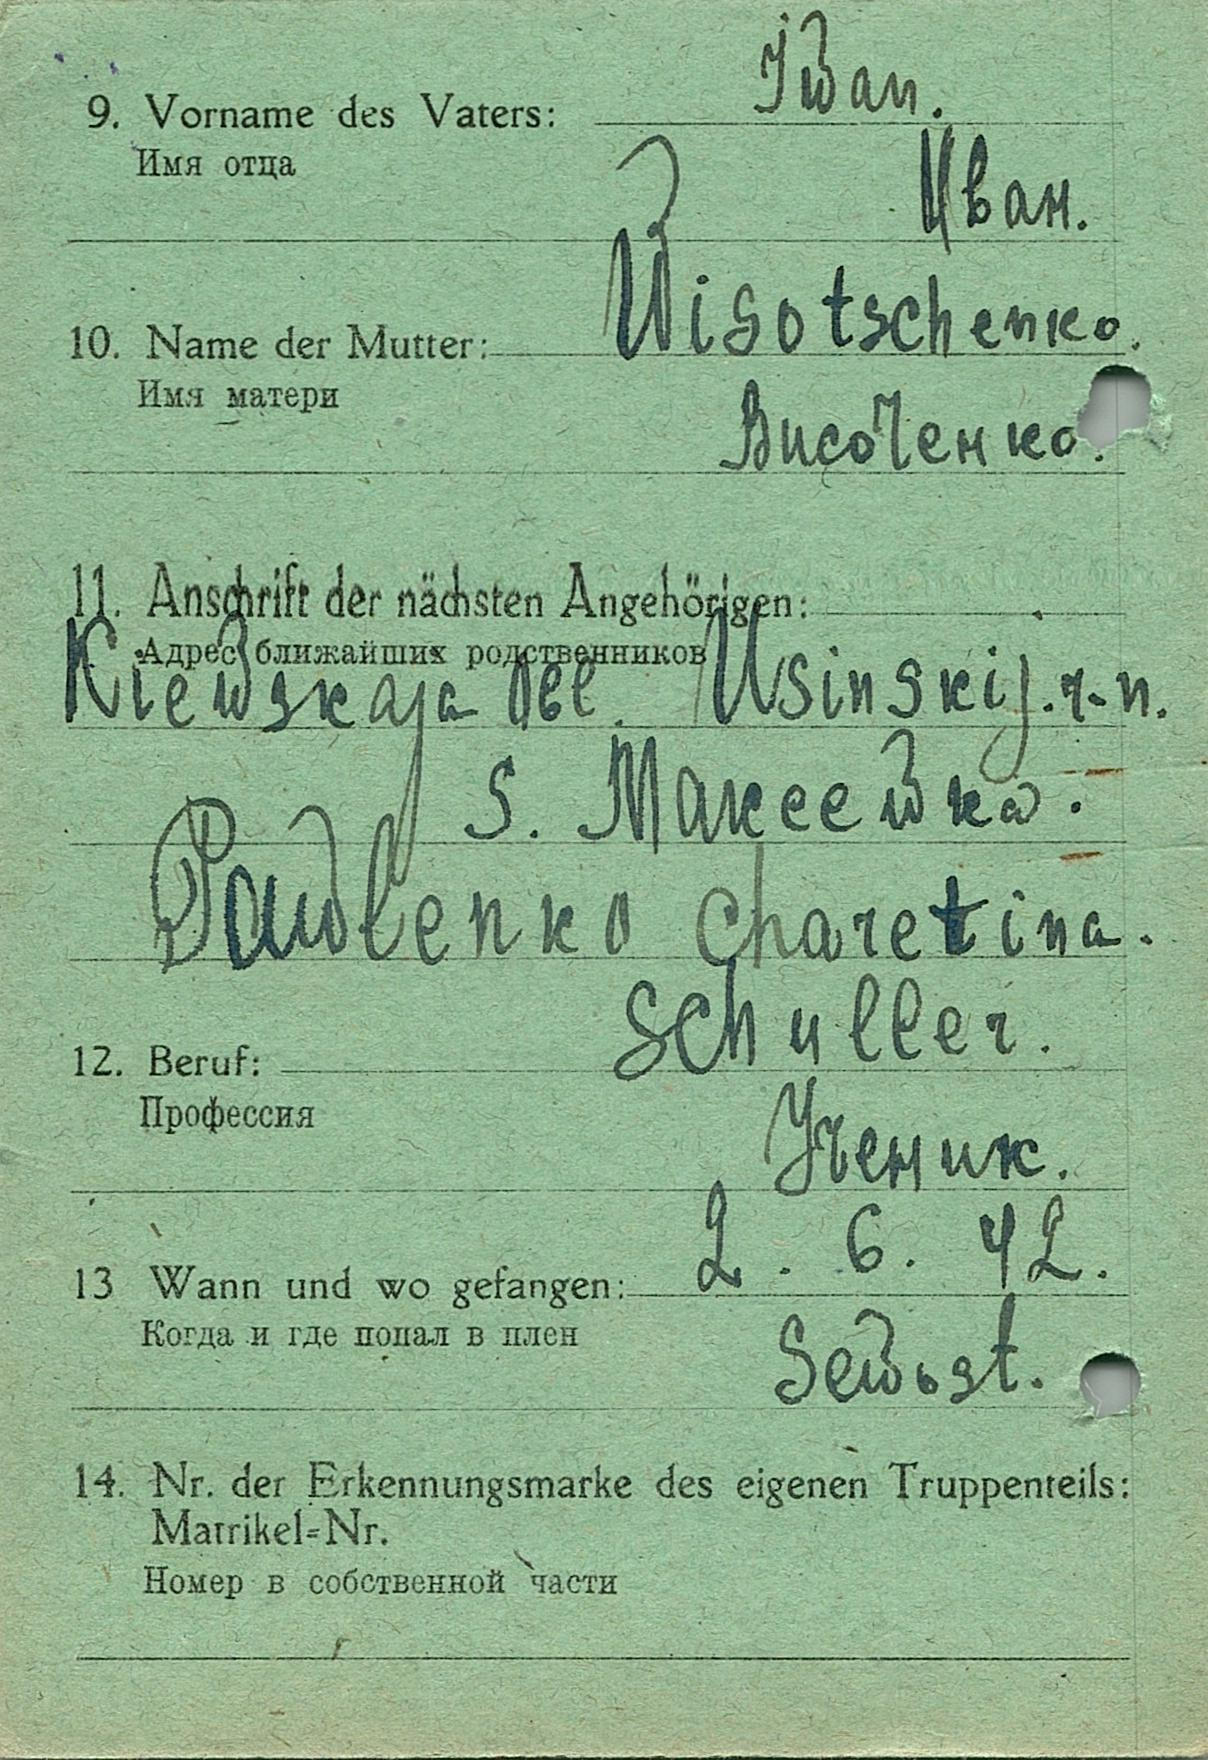 Iwan.
9. Vorname des Vaters:
Имя отца
Иван.
Wisotschenko.
10. Name der Mutter:
Имя матери
Височенко.
11. Anschrift der nächsten Angehörigen:
Адрес ближайших родственников
Kiewskaja Obl. Usinskij.r-n.
s. Makeewka.
Pawlenko Charetina.
Schuller.
12. Beruf:
Профессия
Ученик.
13 Wann und wo gefangen: 2. 6. 42.
Когда и где попал в плен
Sewost.
14. Nr. der Erkennungsmarke des eigenen Truppenteils:
Matrikel=Nr.
Номер в собственной части